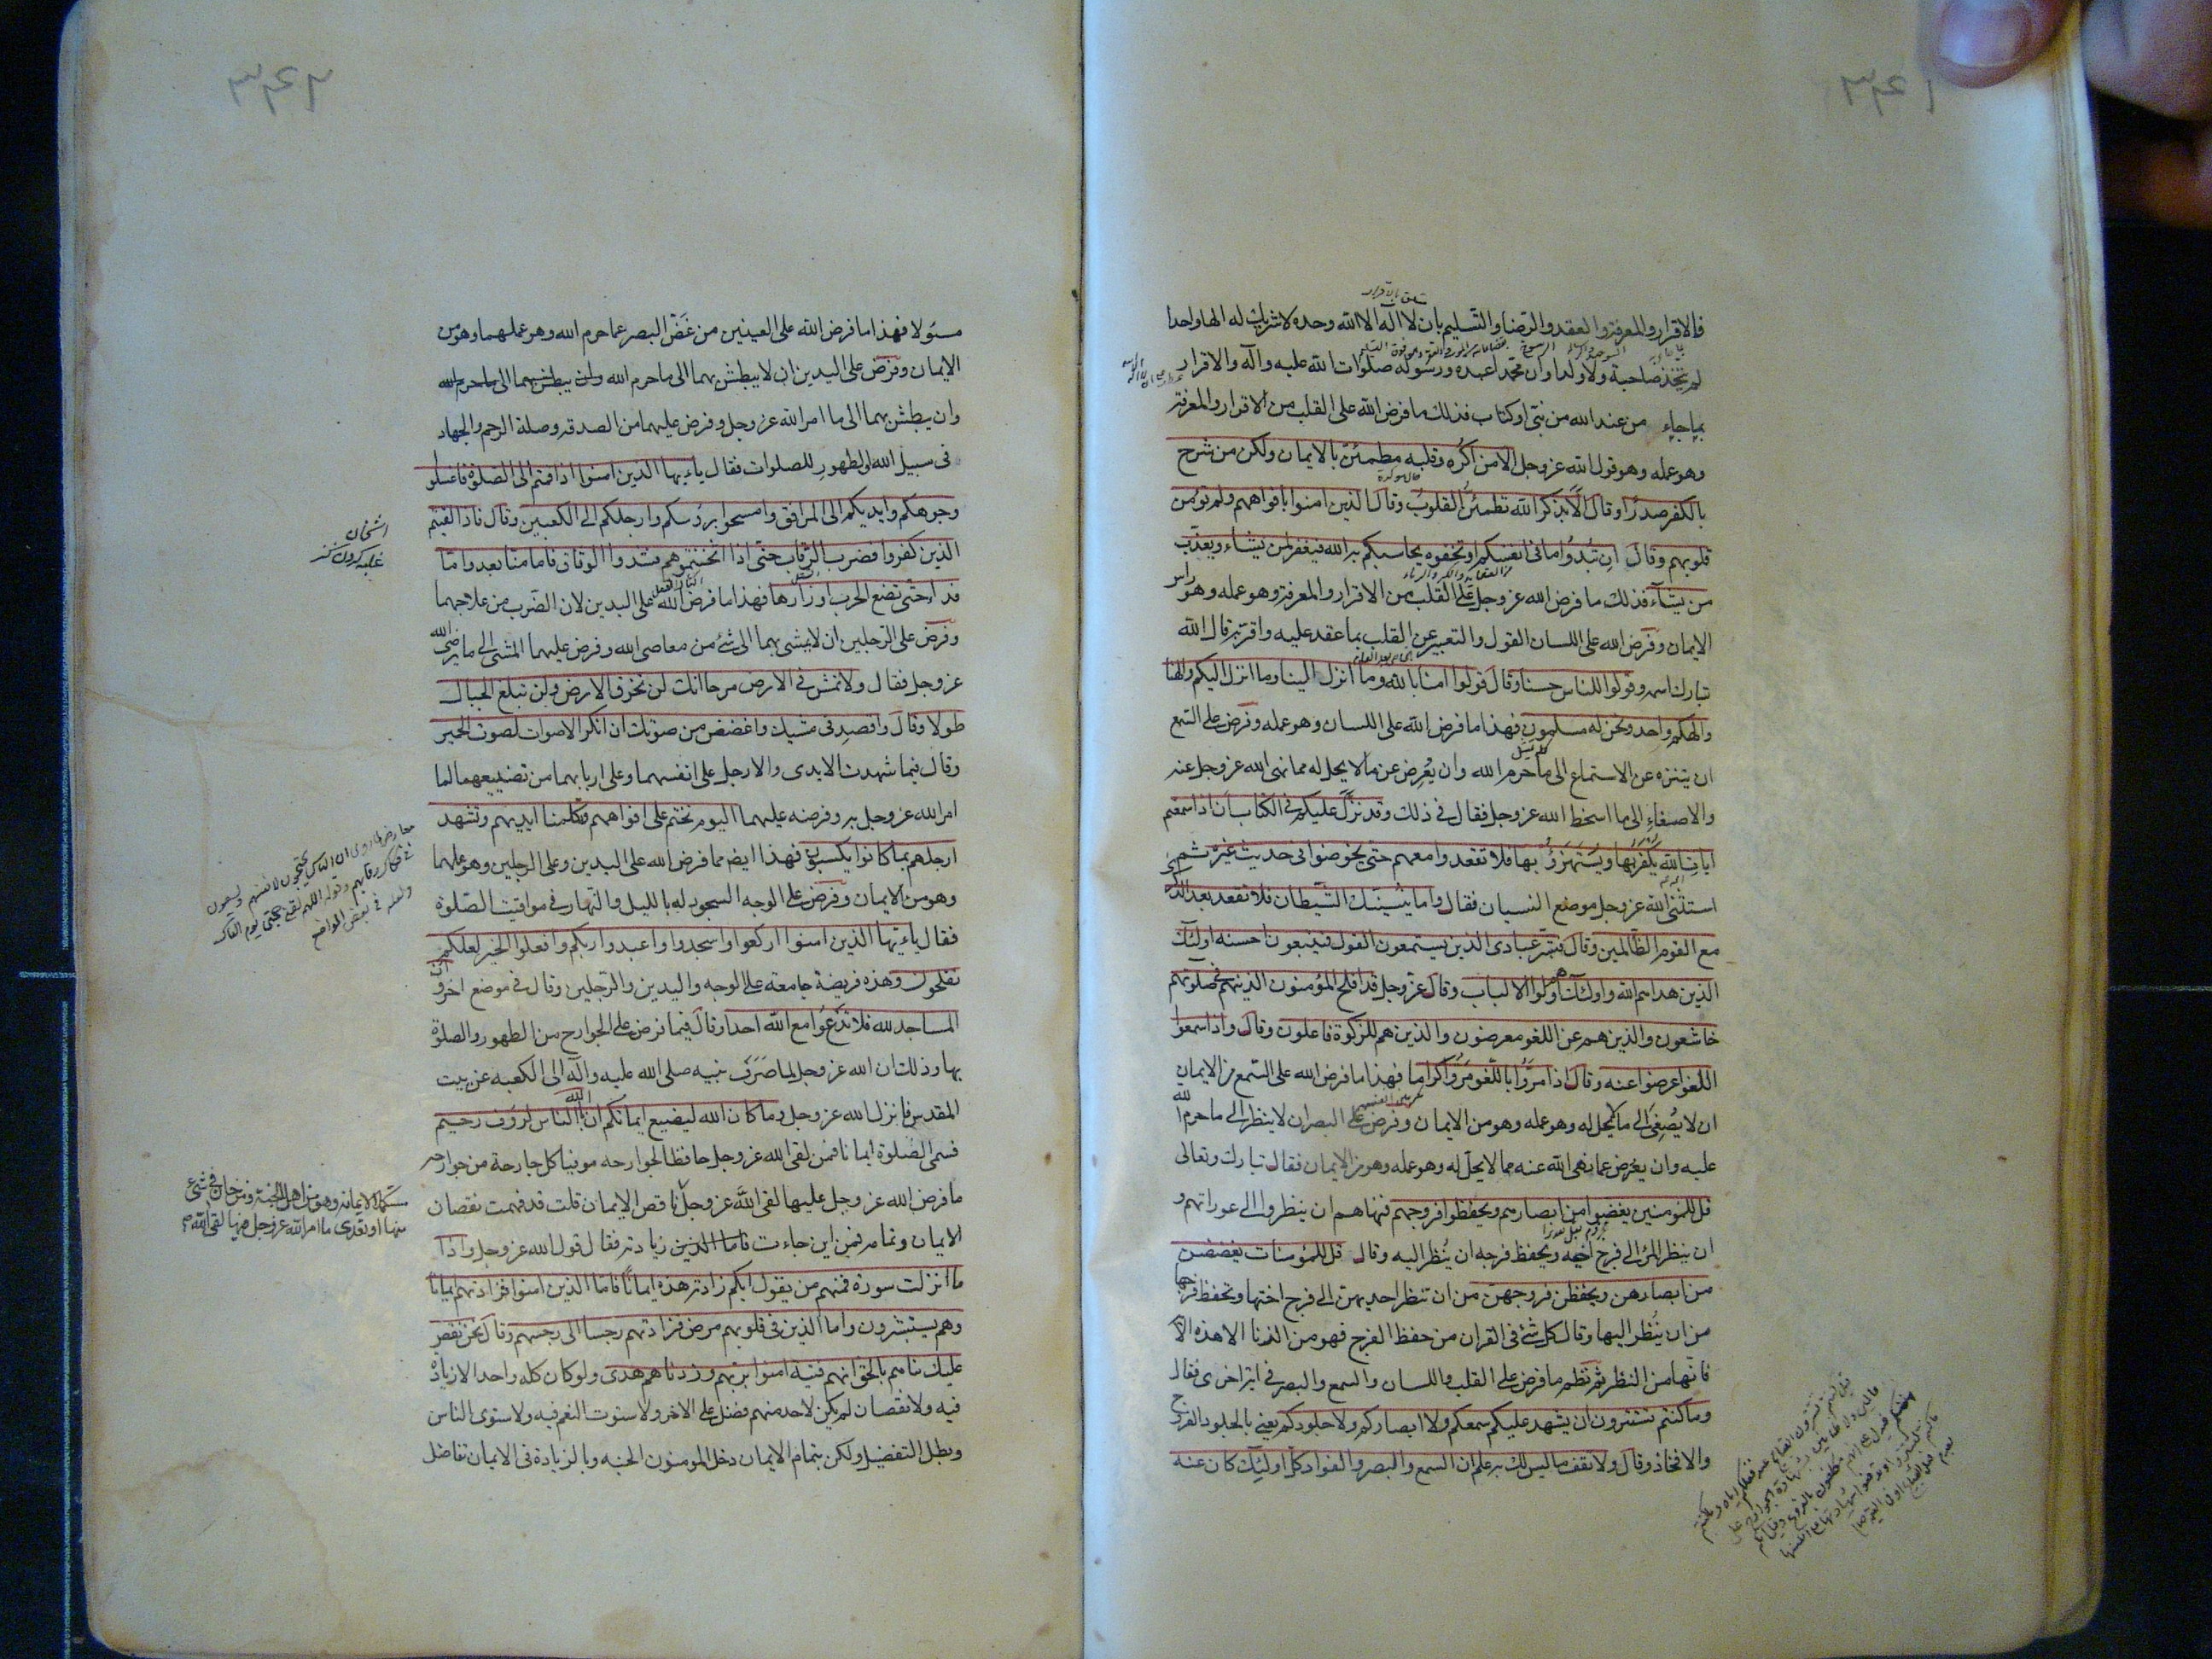 فالاقرار والمعرفة والعقد والرضا والتسليم بان لا اله الا الله وحده لا شريك له الها واحدا
لم يتخذ صاحبة ولا ولدا وان محمدا عبده ورسوله صلوات الله عليه وآله والاقرار
بما جاء من عند الله من نبي او كتاب فذلك ما فرض الله على القلب من الاقرار والمعرفة
وهو عمله وهو قول الله عز وجل الا من اكره وقلبه مطمئن بالايمان ولكن من شرح
بالكفر صدرا وقال الا بذكر الله تطمئن القلوب وقال الذين امنوا بافواههم ولم تؤمن
قلوبهم وقال ان تبدوا ما في انفسكم او تخفوه يحاسبكم به الله فيغفر لمن يشاء ويعذب
من يشاء فذلك ما فرض الله عز وجل على القلب من الاقرار والمعرفة وهو عمله وهو راس
الايمان وفرض الله على اللسان القول والتعبير عن القلب بما عقد عليه واقر به قال الله
تبارك اسمه وقولوا للناس حسنا وقال قولوا امنا بالله وما انزل الينا وما انزل اليكم والهنا
والهكم واحد ونحن له مسلمون فهذا ما فرض الله على اللسان وهو عمله وفرض على السمع
ان يتنزه عن الاستماع الى ما حرم الله وان يعرض عن ما لا يحل له مما نهى الله عز وجل عنه
والاصغاء الى ما اسخط الله عز وجل فقال في ذلك وقد نزل عليكم في الكتاب ان اذا سمعتم
ايات الله يكفر بها ويستهزؤ بها فلا تقعدوا معهم حتى يخوضوا في حديث غيره ثم
استثنى الله عز وجل موضع النسيان فقال واما ينسينك الشيطان فلا تقعد بعد الذكرى
مع القوم الظالمين وقال فبشر عبادي الذين يستمعون القول فيتبعون احسنه اولئك
الذين هداهم الله واولئك هم اولوا الالباب وقال عز وجل قد افلح المؤمنون الذين هم في صلوتهم
خاشعون والذين هم عن اللغو معرضون والذين هم للزكوة فاعلون وقال واذا سمعوا
اللغو اعرضوا عنه وقال اذا مروا باللغو مروا كراما فهذا ما فرض الله على السمع من الايمان
ان لا يصغي الى ما لا يحل له وهو عمله وهو من الايمان وفرض على البصر ان لا ينظر الى ما حرم الله
عليه وان يعرض عما نهى الله عنه مما لا يحل له وهو عمله وهو من الايمان فقال تبارك وتعالى
قل للمؤمنين يغضوا من ابصارهم ويحفظوا فروجهم فنهاهم ان ينظروا الى عوراتهم و
ان ينظر المرء الى فرج اخيه ويحفظ فرجه ان ينظر اليه وقال قل للمؤمنات يغضضن
من ابصارهن ويحفظن فروجهن من ان تنظر احديهن الى فرج اختها وتحفظ فرجها
من ان ينظر اليها وقال كل شئ في القران من حفظ الفرج فهو من الزنا الا هذه الآية
فانها من النظر ثم نظم ما فرض على القلب واللسان والسمع والبصر في اية اخرى فقال
وما كنتم تستترون ان يشهد عليكم سمعكم ولا ابصاركم ولا جلودكم يعني بالجلود الفروج
والافخاذ وقال ولا تقف ما ليس لك به علم ان السمع والبصر والفواد كل اولئك كان عنه
مسئولا فهذا ما فرض الله على العينين من غض البصر عما حرم الله وهو عملهما وهو من
الايمان وفرض على اليدين ان لا يبطش بهما الى ما حرم الله وان يبطش بهما الى ما حرم الله
وان يبطش بهما الى ما امر الله عز وجل وفرض عليهما من الصدقة وصلة الرحم والجهاد
في سبيل الله والطهور للصلوات فقال يا ايها الذين امنوا اذا قمتم الى الصلوة فاغسلوا
وجوهكم وايديكم الى المرافق وامسحوا برؤسكم وارجلكم الى الكعبين وقال فاذا لقيتم
الذين كفروا فضرب الرقاب حتى اذا اثخنتموهم فشدوا الوثاق فاما منا بعد واما
فداء حتى تضع الحرب اوزارها فهذا ما فرض الله على اليدين لان الضرب من علاجهما
وفرض على الرجلين ان لا يمشي بهما الى شئ من معاصي الله وفرض عليهما المشي الى ما يرضي الله
عز وجل فقال ولا تمش في الارض مرحا انك لن تخرق الارض ولن تبلغ الجبال
طولا وقال واقصد في مشيك واغضض من صوتك ان انكر الاصوات لصوت الحمير
وقال فيما شهدت الايدي والارجل على انفسهما وعلى اربابهما من تضييعهما لما
امر الله عز وجل به وفرضه عليهما اليوم نختم على افواههم وتكلمنا ايديهم وتشهد
ارجلهم بما كانوا يكسبون فهذا ايضا مما فرض الله على اليدين وعلى الرجلين وهو عملهما
وهو من الايمان وفرض على الوجه السجود له بالليل والنهار في مواقيت الصلوة
فقال يا ايها الذين امنوا اركعوا واسجدوا واعبدوا ربكم وافعلوا الخير لعلكم
تفلحون وهذه فريضة جامعة على الوجه واليدين والرجلين وقال في موضع اخر وان
المساجد لله فلا تدعوا مع الله احدا وقال فيما فرض على الجوارح من الطهور والصلوة
بها وذلك ان الله عز وجل لما صرف نبيه صلى الله عليه وآله الى الكعبه عن بيت
المقدس فانزل الله عز وجل وما كان الله ليضيع ايمانكم ان الله بالناس لرؤف رحيم
فسمى الصلوة ايمانا فمن لقى الله عز وجل حافظا لجوارحه موفيا كل جارحة من جوارحه
ما فرض الله عز وجل عليها لقى الله عز وجل ناقص الايمان قلت قد فهمت نقصان
مستكملا لايمانه وهو من اهل الجنة ومن خان في شئ
منها او تعدى ما امر الله عز وجل فيها لقى الله
الايمان وتمامه فمن اين جاءت فاما الذين زيادته فقال قول الله عز وجل واذا
ما انزلت سورة فمنهم من يقول ايكم زادته هذه ايمانا فاما الذين امنوا فزادتهم ايمانا
وهم يستبشرون واما الذين في قلوبهم مرض فزادتهم رجسا الى رجسهم وقال نحن نقص
عليك نباهم بالحق انهم فتية امنوا بربهم وزدناهم هدى ولو كان كله واحدا لا زيادة
فيه ولا نقصان لم يكن لاحد منهم فضل على الاخر ولاستوت النعم فيه ولاستوى الناس
وبطل التفضيل ولكن بتمام الايمان دخل المومنون الجنه وبالزيادة في الايمان تفاضل